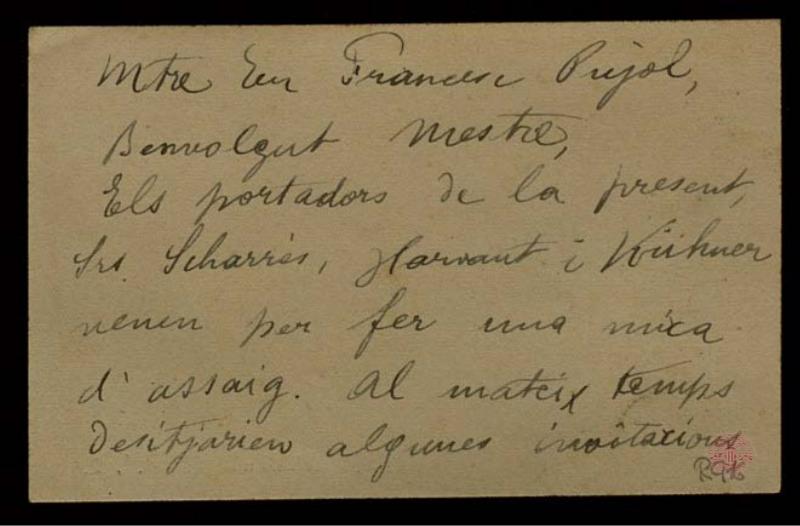 Mtre En Francesc Pujol,
Benvolgut Mestre,
Els portadors de la present,
Srs. Scharrès, Horvant i Kühner
venen per fer una mica
d'assaig. Al mateix temps
desitjarien algunes invitacions